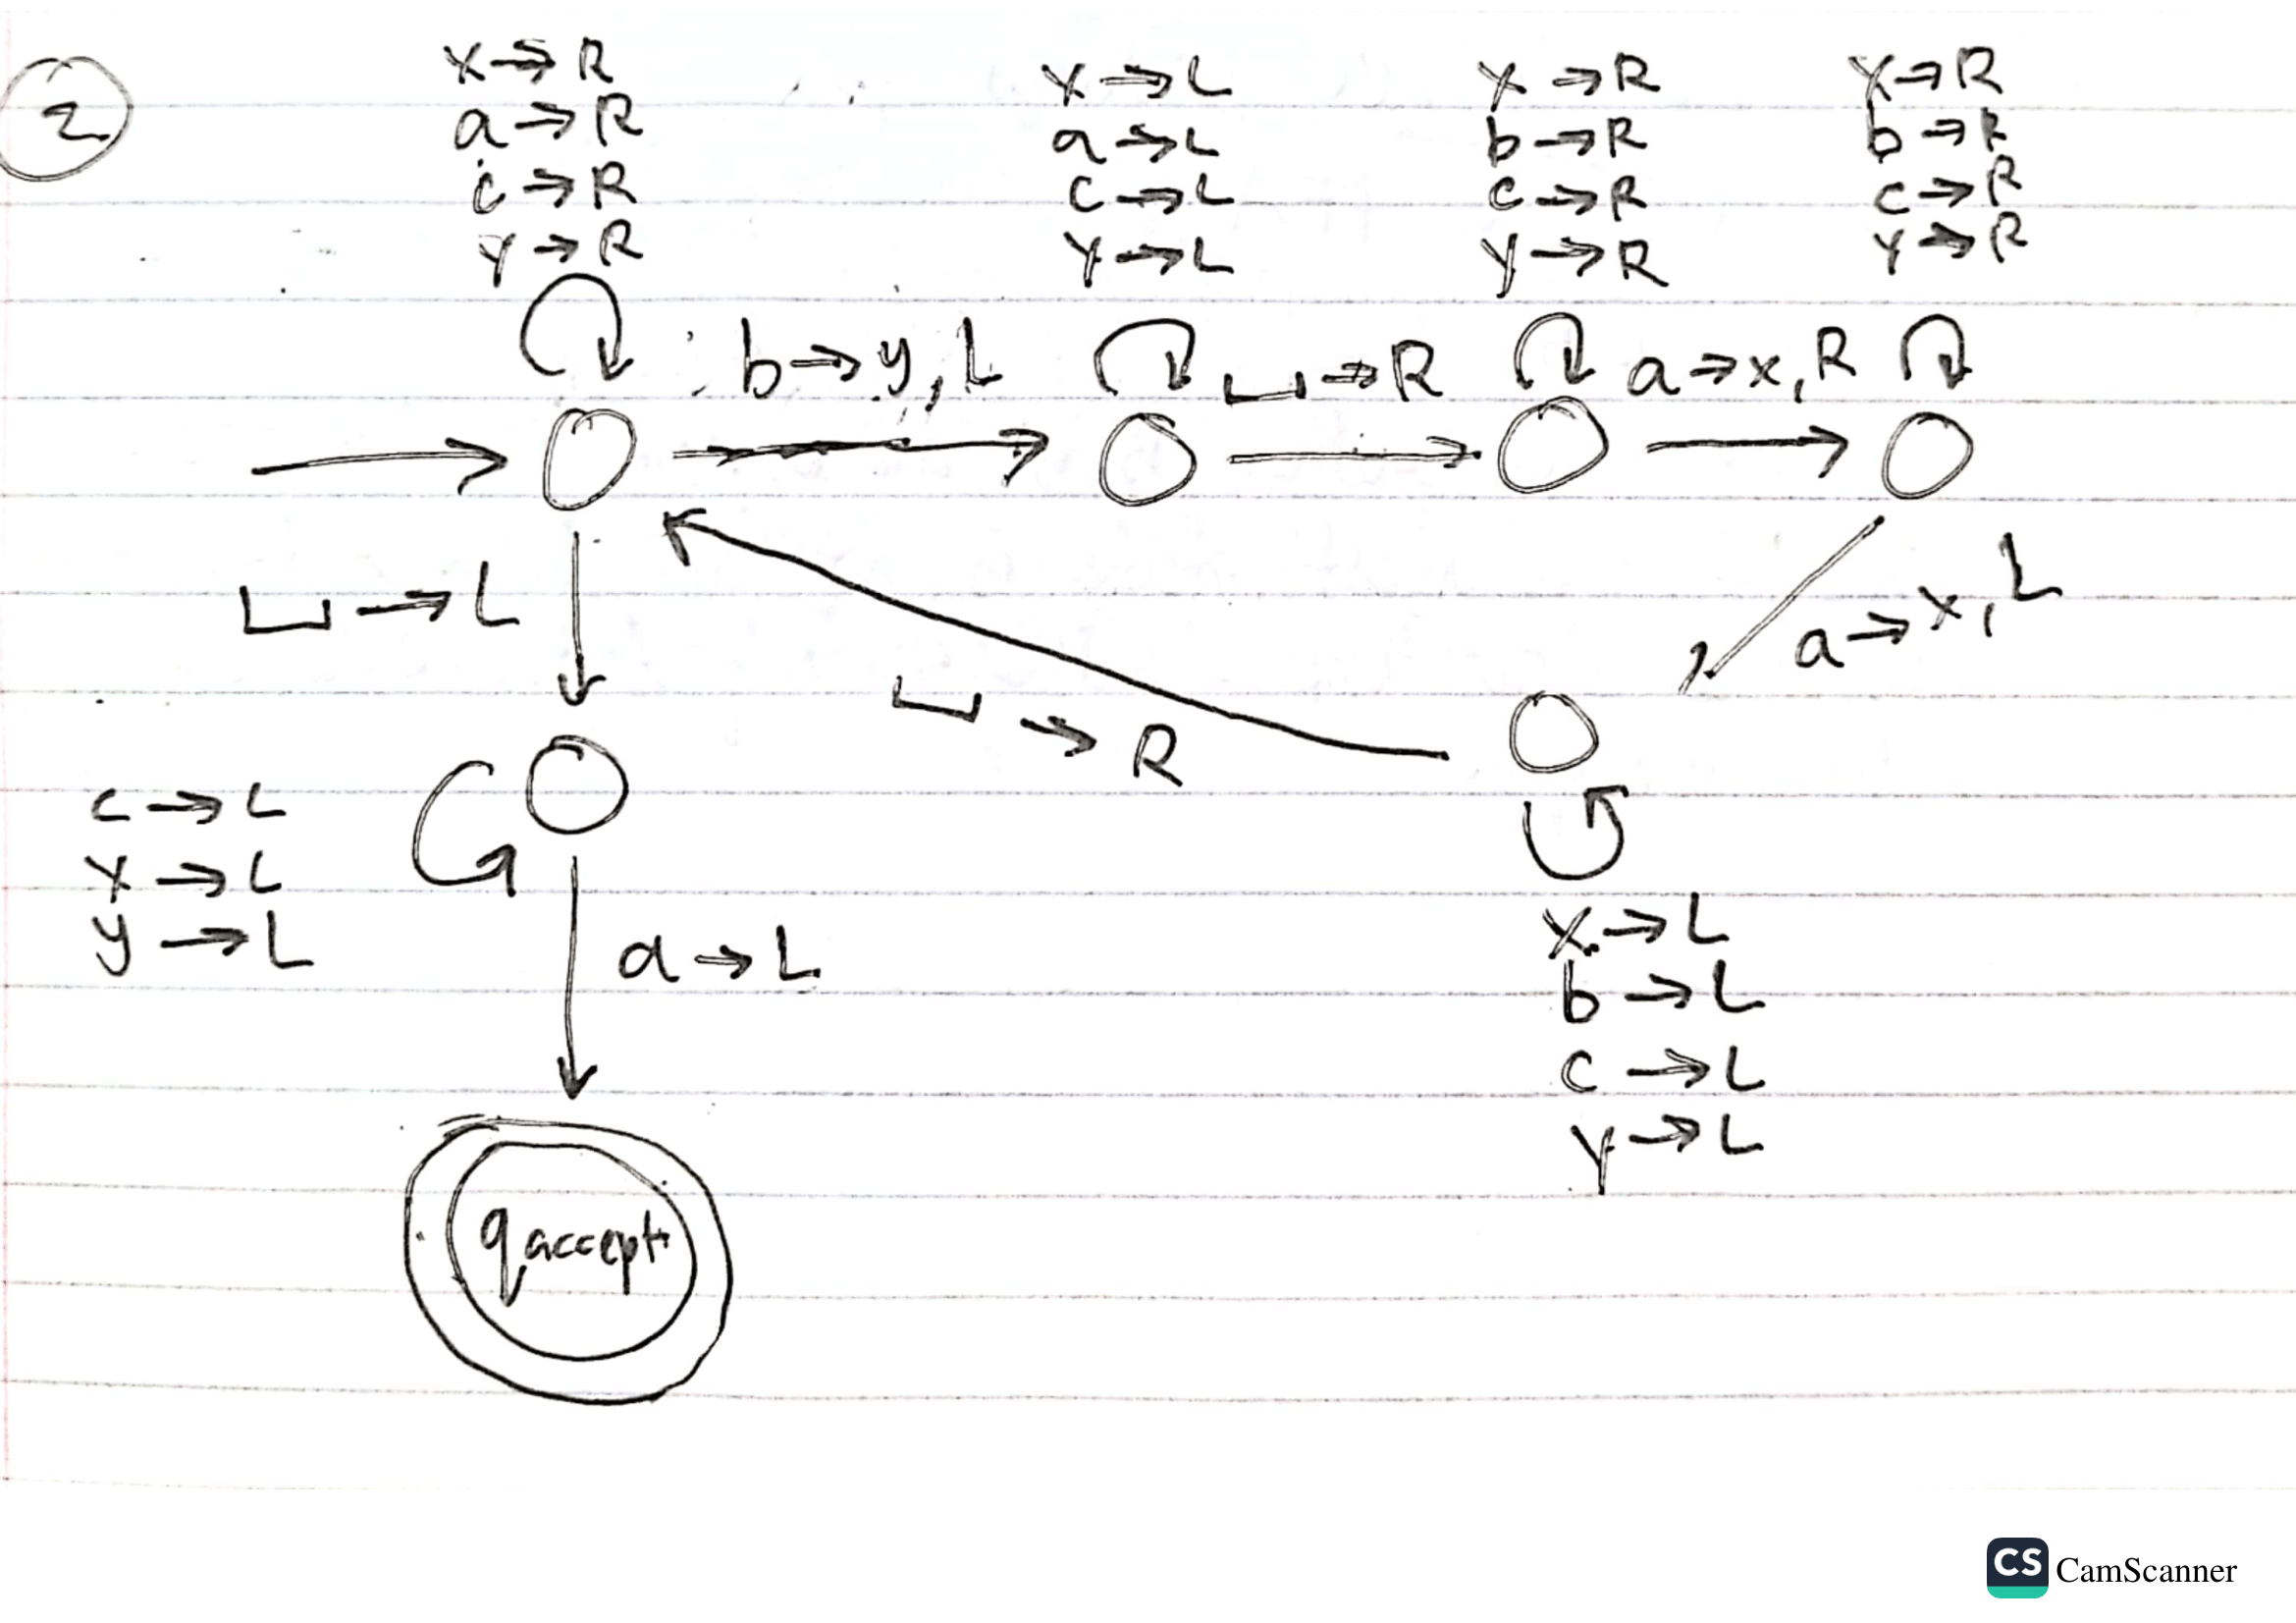 2
x → R
a → R
c → R
y → R
x → L
a → L
c → L
y → L
x → R
b → R
c → R
y → R
x → R
b → R
c → R
y → R
b → y, L
⊔ → R
a → x, R
⊔ → L
⊔ → R
a → x, L
c → L
x → L
y → L
a → L
x → L
b → L
c → L
y → L
q accept
CS CamScanner